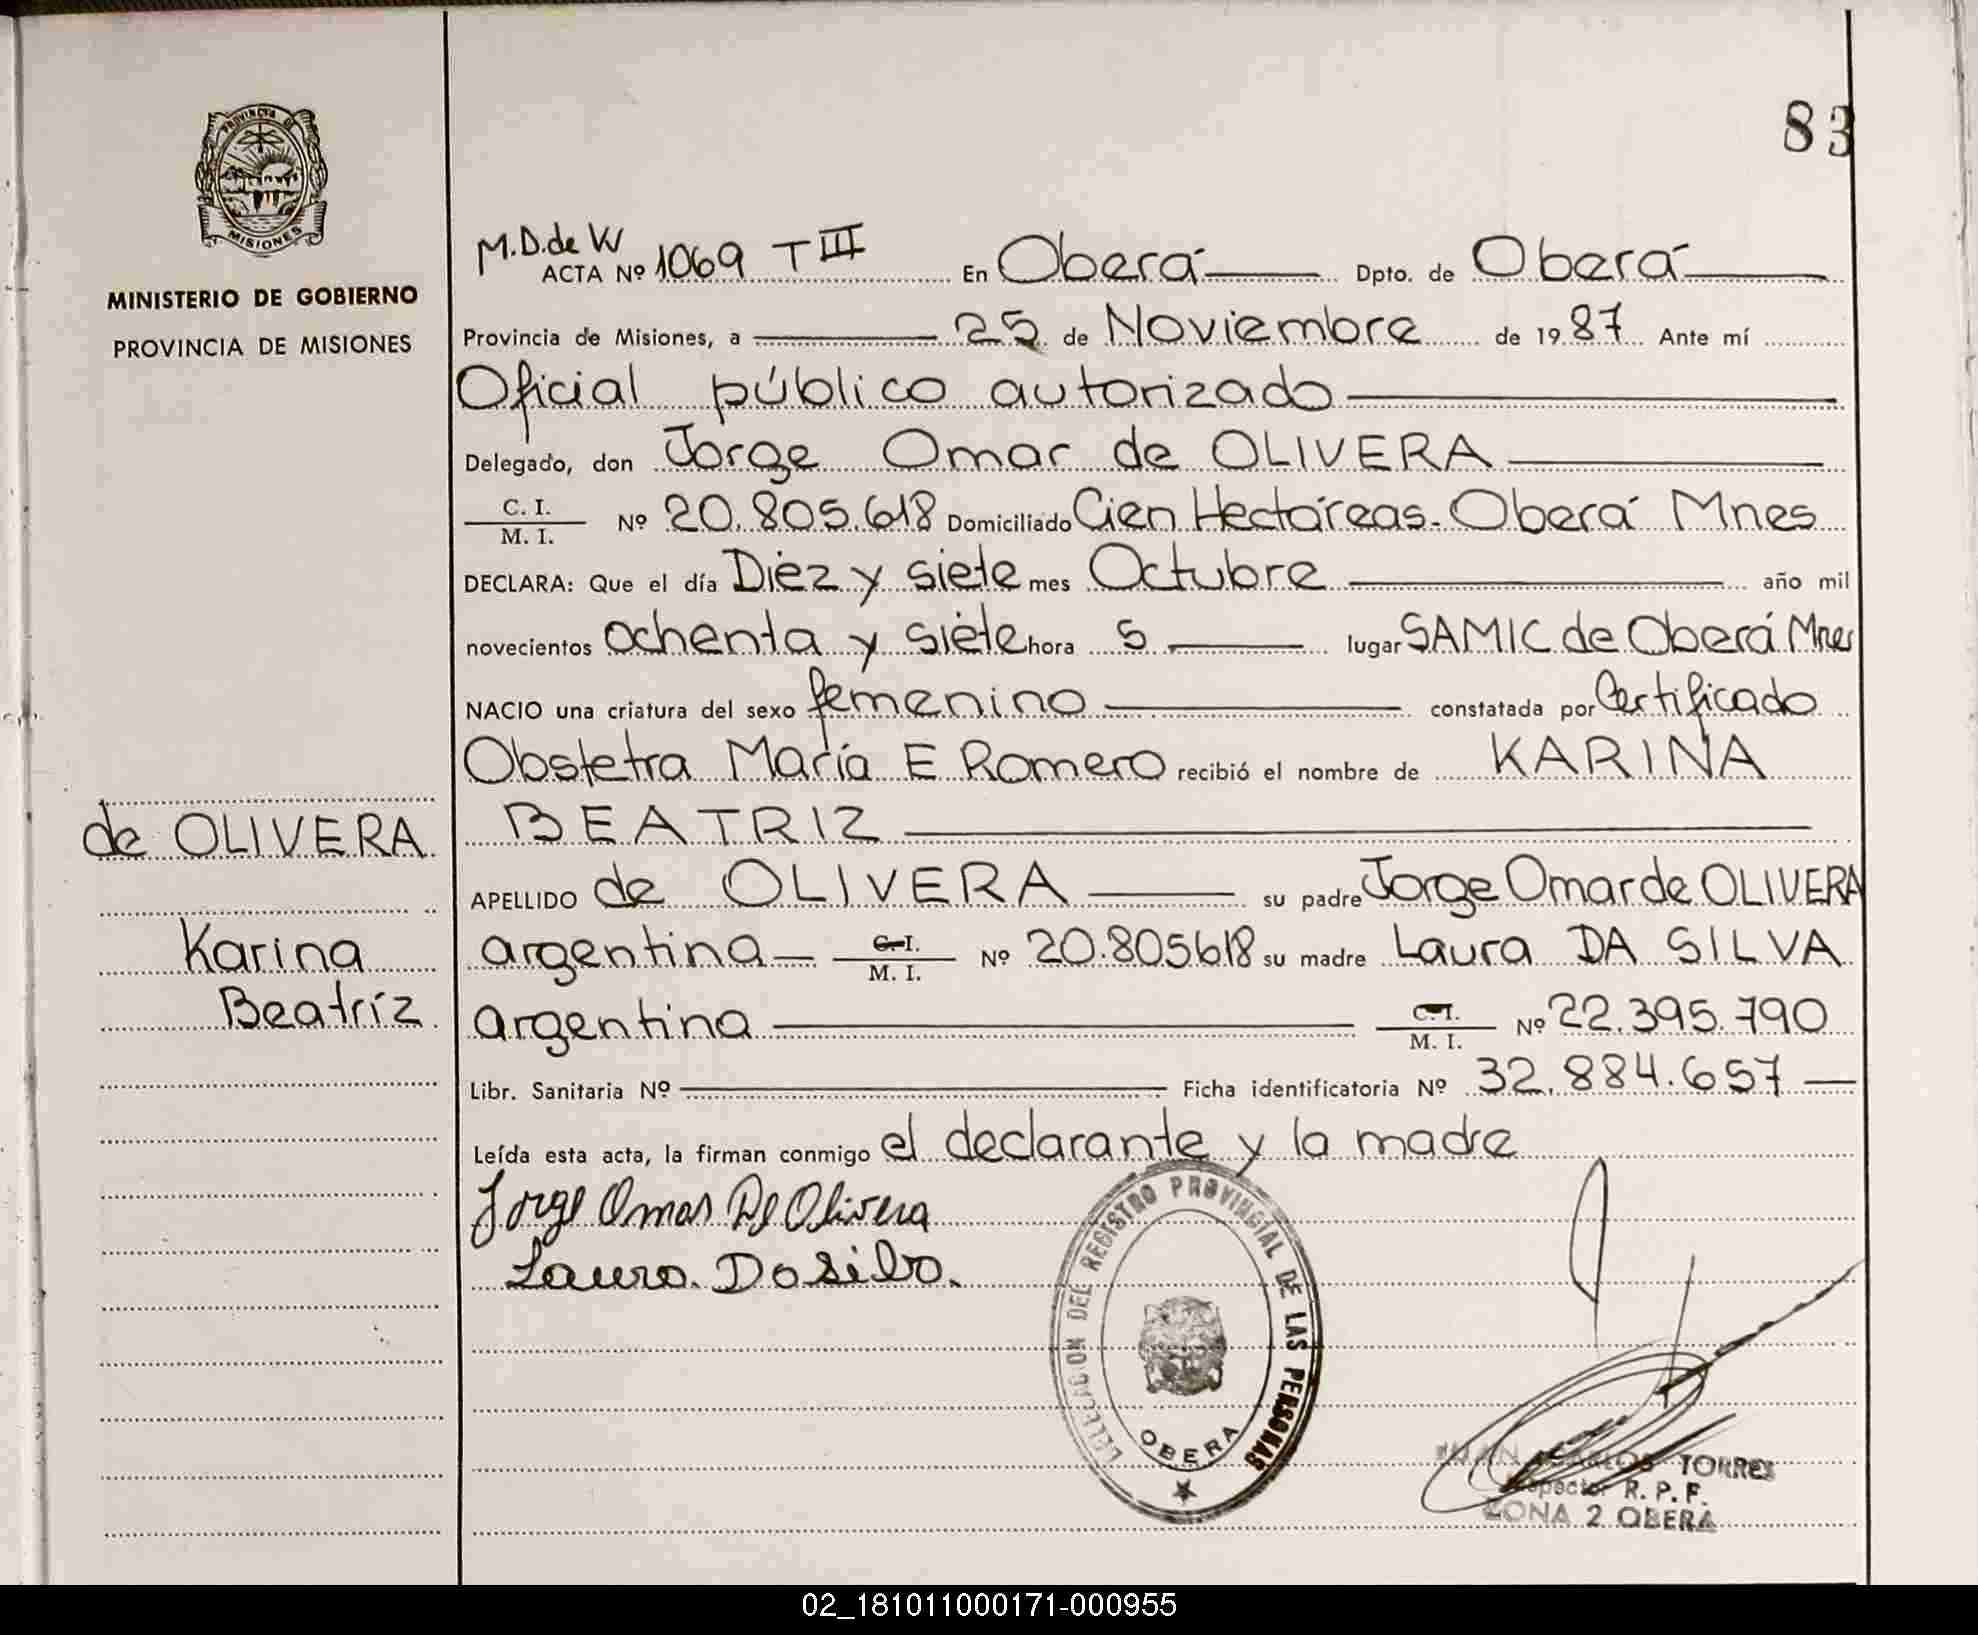 83
PROVINCIA DE
MISIONES
MINISTERIO DE GOBIERNO
PROVINCIA DE MISIONES
M.D.de W
ACTA Nº 1069 T III En Oberá Dpto. de Oberá
Provincia de Misiones, a 25 de Noviembre de 1987 Ante mí
Oficial público autorizado
Delegado, don Jorge Omar de OLIVERA
C. I.
M. I. Nº 20.805.618 Domiciliado Cien Hectáreas-Oberá Mnes
DECLARA: Que el día Diez y siete mes Octubre año mil
novecientos ochenta y siete hora 5 lugar SAMIC de Oberá Mnes
NACIO una criatura del sexo femenino constatada por Certificado
Obstetra María E Romero recibió el nombre de KARINA
BEATRIZ
de OLIVERA
APELLIDO de OLIVERA su padre Jorge Omar de OLIVERA
Karina
Beatríz
argentina C. I. M. I. Nº 20.805618 su madre Laura DA SILVA
argentina C. I. M. I. Nº 22.395.790
Libr. Sanitaria Nº Ficha identificatoria Nº 32.884.657
Leída esta acta, la firman conmigo el declarante y la madre
Jorge Omar De Olivera
Laura Da Silva.
DELEGACION DEL REGISTRO PROVINCIAL DE LAS PERSONAS
OBERA
JUAN CARLOS TORRES
Inspector R. P. P.
ZONA 2 OBERA
02_181011000171-000955